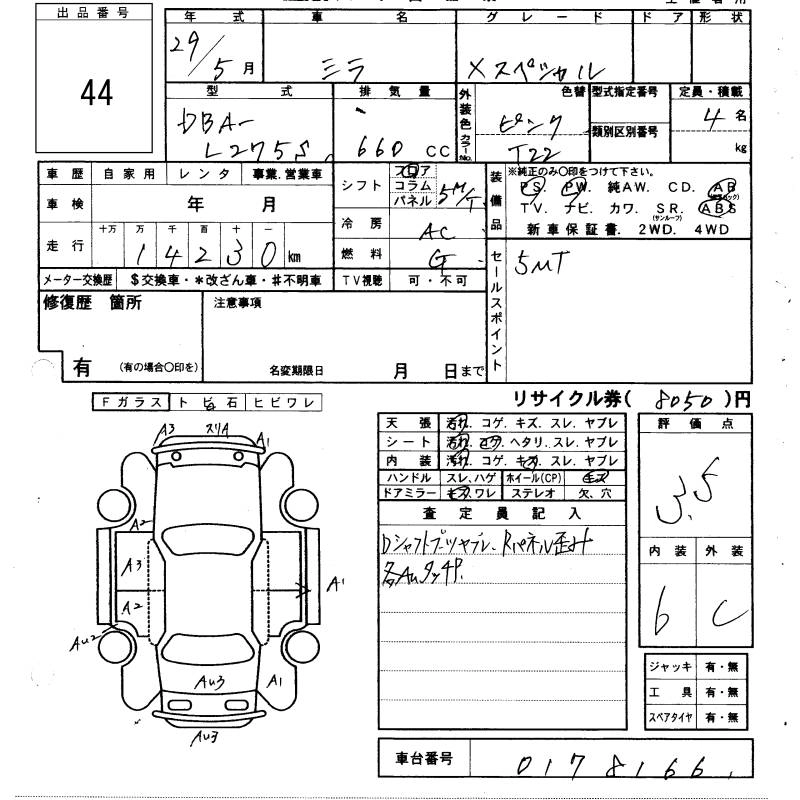 出品番号
44
年式 車名 グレード ドア 形状
29/5月 ミラ Xスペシャル
型式 排気量 外装色 カラーNo. 色替 型式指定番号 定員・積載
DBA-
L275S 660 CC ピンク T22 類別区別番号 4名
kg
車歴 自家用 レンタ 事業.営業車
車検 年 月
走行 十万 万 千 百 十 一
14230 km
メーター交換歴 $交換車・*改ざん車・#不明車
シフト フロア
コラム
パネル 5M/T
冷房 AC
燃料 G
TV視聴 可・不可
装備品 ※純正のみ○印をつけて下さい。
PS. PW. 純AW. CD. AB
TV. ナビ. カワ. SR. ABS
(サンルーフ)
新車保証書. 2WD. 4WD
セールスポイント 5MT
修復歴 箇所
有 (有の場合○印を)
注意事項
名変期限日 月 日まで
リサイクル券( 8050 )円
Fガラス トビ石 ヒビワレ
天張 汚れ. コゲ. キズ. スレ. ヤブレ
シート 汚れ. コゲ. ヘタリ. スレ. ヤブレ
内装 汚れ. コゲ. キズ. スレ. ヤブレ
ハンドル スレ. ハゲ ホイール(CP) キズ
ドアミラー キズ. ワレ ステレオ 欠、穴
査定員記入
Dシャフトブーツヤブレ、Rパネル歪み
各AUタッチP.
評価点
3.5
内装 外装
6 C
ジャッキ 有・無
工具 有・無
スペアタイヤ 有・無
車台番号 0178166
A3 スリA A1
A2
A3
A2 A1
AU2
AU3 A1
AU3